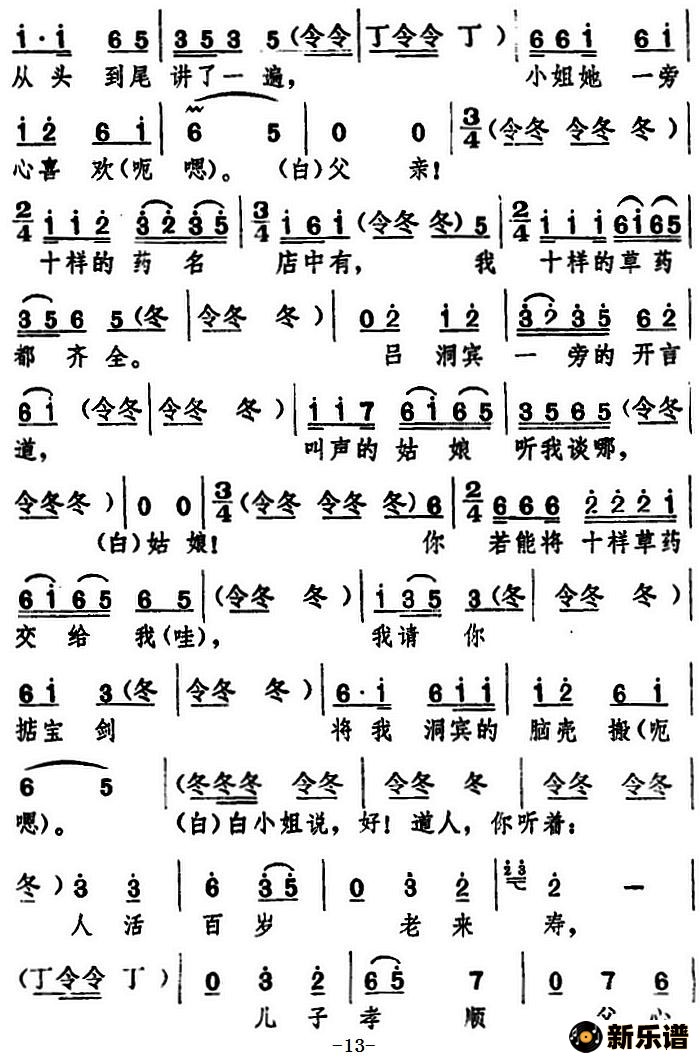 i·i 65 | 353 5(令令 | 丁令令 丁) | 66i 6i |
从头 到尾 讲了一遍， 小姐她 一旁
i2 6i | 6 5 | 0 0 | 3/4 (令冬 令冬 冬) |
心喜 欢(呃 嗯)。 (白)父 亲！
2/4 ii2 3235 | 3/4 i6i (令冬冬)5 | 2/4 iii 6i65 |
十样的 药名 店中有， 我 十样的草药
356 5(冬 | 令冬 冬) | 02 42 | 3235 62 |
都齐全。 吕 洞宾 一旁的 开言
6i (令冬 | 令冬 冬) | ii7 6i65 | 3565 (令冬 |
道， 叫声的 姑娘 听我谈哪，
令冬冬) | 0 0 | 3/4 (令冬 令冬 冬)6 | 2/4 666 222i |
(白)姑 娘！ 你 若能将 十样草药
6i65 65 | (令冬 冬) | i35 3(冬 | 令冬 冬) |
交给 我(哇)， 我请 你
6i 3(冬 | 令冬 冬) | 6·i 6ii | i2 6i |
掂宝 剑 将我 洞宾的 脑壳 搬(呃
6 5 | (冬冬冬 令冬 | 令冬 冬 | 令冬 令冬 |
嗯)。 (白)白小姐说，好！道人，你听着：
冬)3 3 | 6 35 | 0 3 2 | 23 2 — |
人活 百岁 老来 寿，
(丁令令 丁) | 0 3 2 | 65 7 | 0 7 6 |
儿子孝 顺 父心
-13-
新乐谱